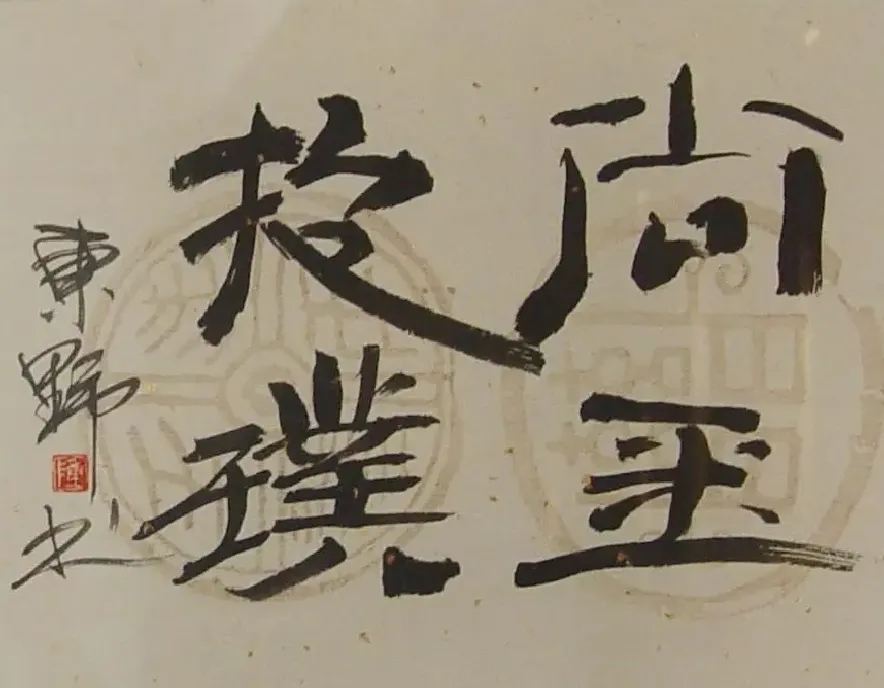 尚玉
抱璞
東野书